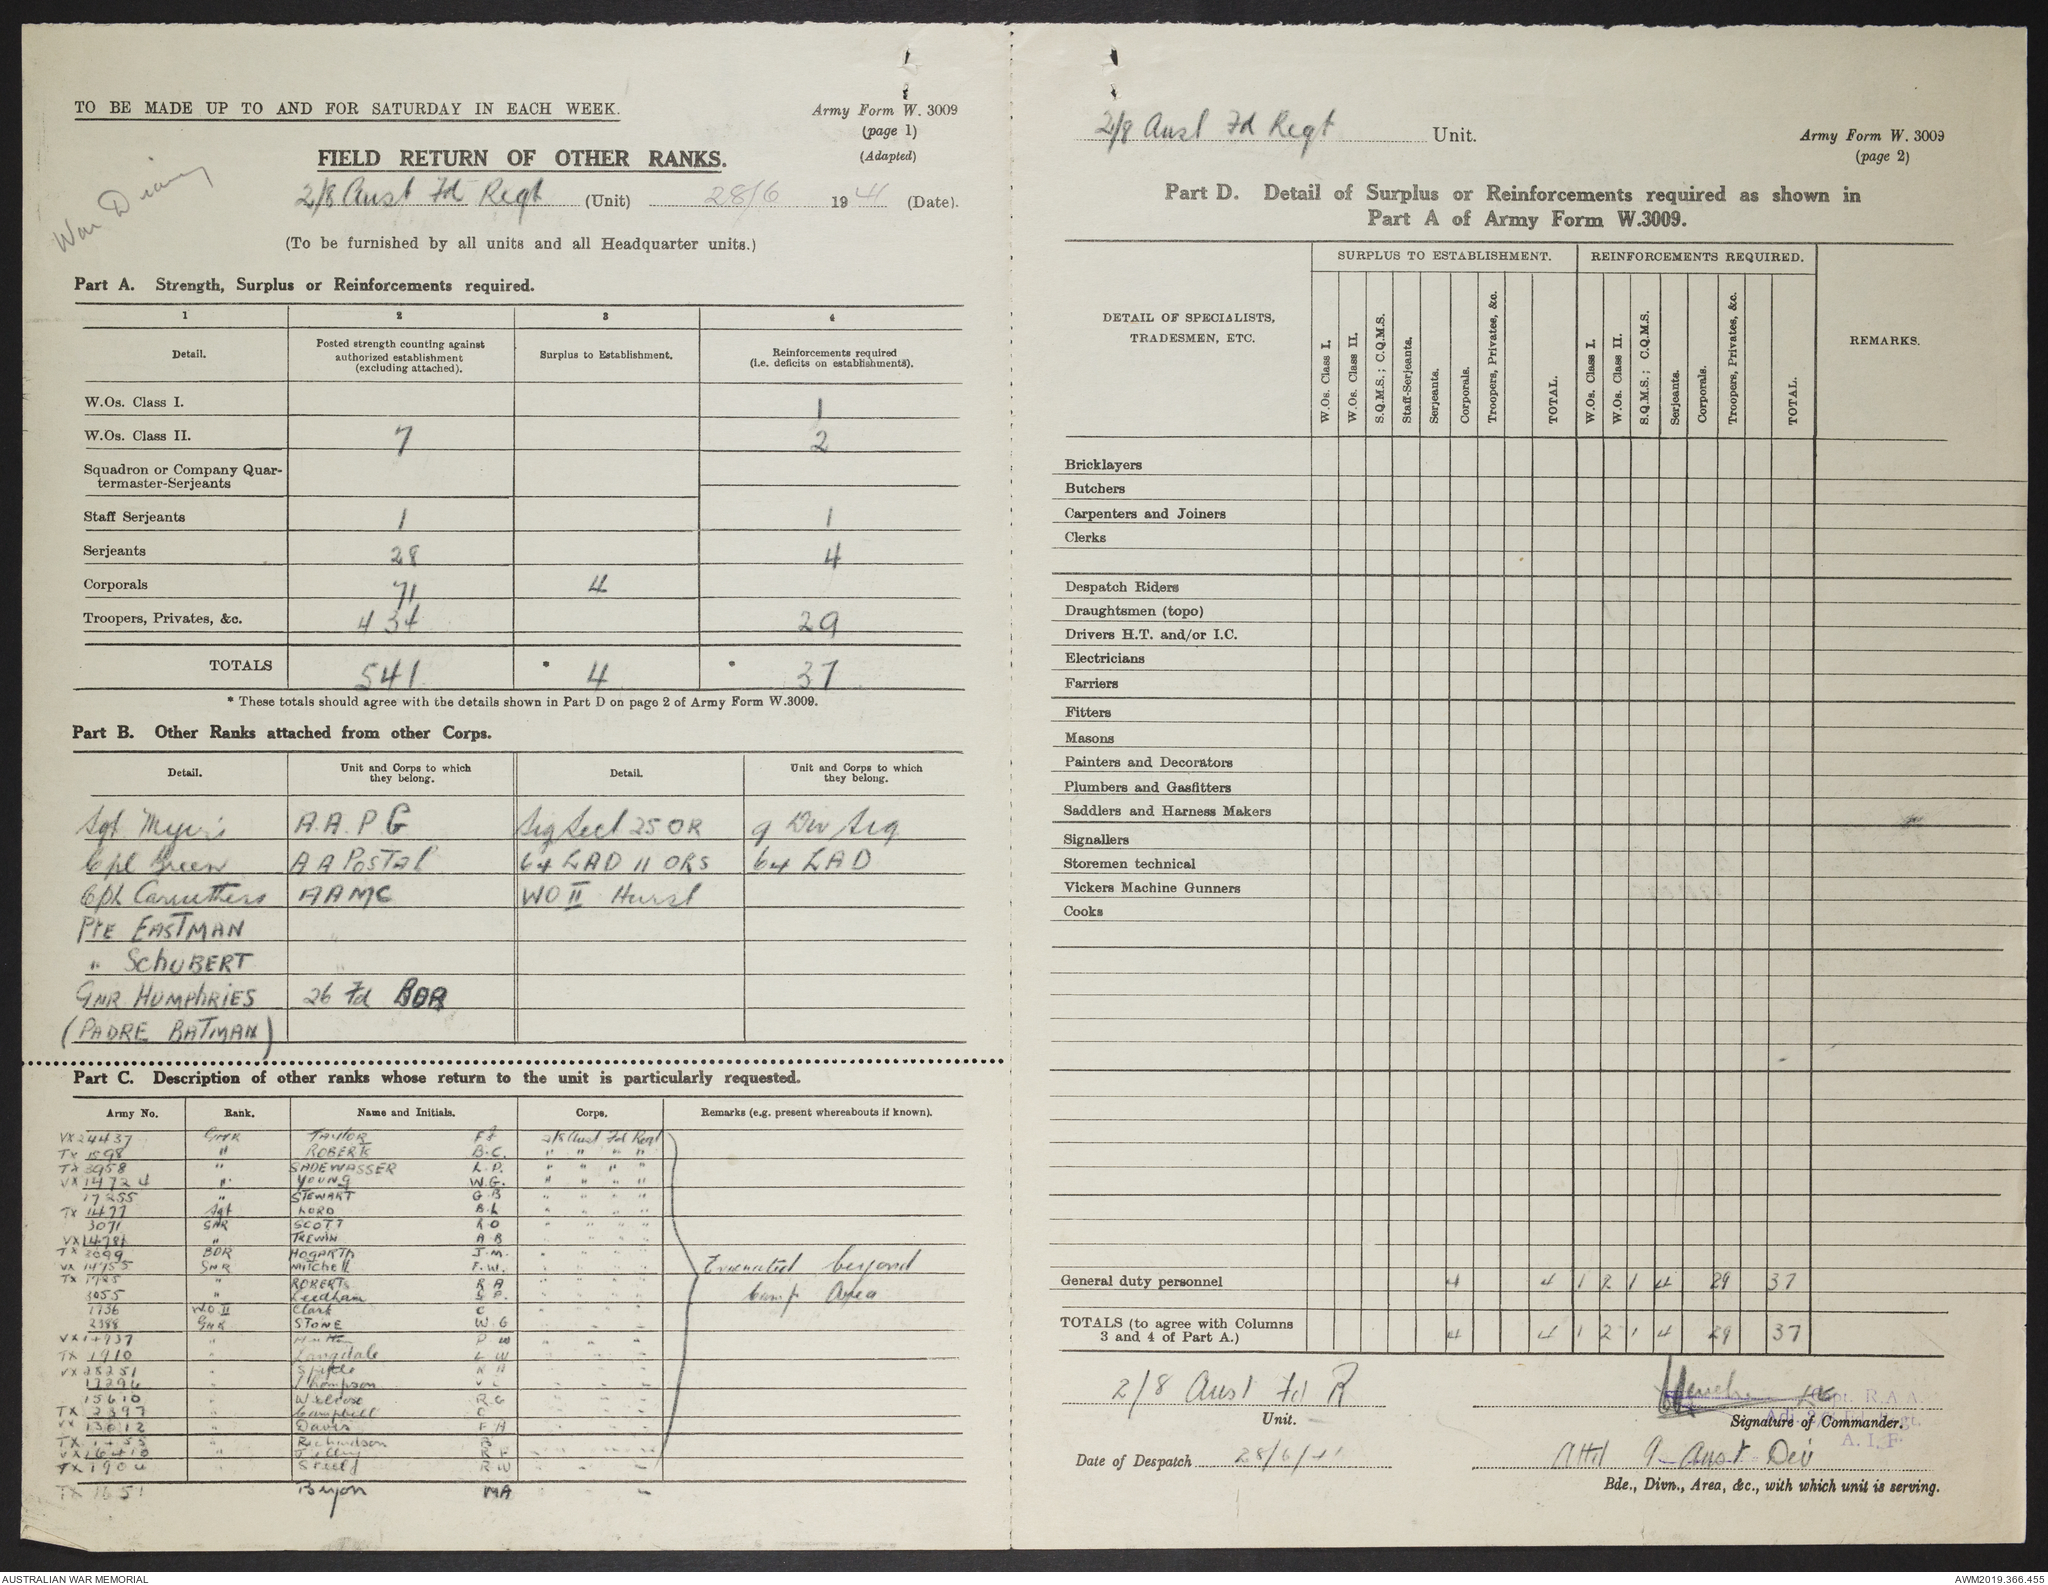 TO BE MADE UP TO AND FOR SATURDAY IN EACH WEEK.
Army Form W. 3009
(page 1)
(Adapted)
War Diary
FIELD RETURN OF OTHER RANKS.
2/8 Aust Fd Regt (Unit) 28/6 1941 (Date).
(To be furnished by all units and all Headquarter units.)
Part A. Strength, Surplus or Reinforcements required.
1 2 3 4
Detail. Posted strength counting against authorized establishment (excluding attached). Surplus to Establishment. Reinforcements required (i.e. deficits on establishments).
W.Os. Class I. 1
W.Os. Class II. 7 2
Squadron or Company Quar-
termaster-Serjeants
Staff Serjeants 1 1
Serjeants 28 4
Corporals 71 4
Troopers, Privates, &c. 434 29
TOTALS 541 * 4 * 37
* These totals should agree with the details shown in Part D on page 2 of Army Form W.3009.
Part B. Other Ranks attached from other Corps.
Detail. Unit and Corps to which they belong. Detail. Unit and Corps to which they belong.
Sgt Myers A.A.P.C Sig Sect 25 OR 9 Div Sig
Cpl Green A A POSTAL 64 LAD 11 ORS 64 LAD
Cpl Carruthers AAMC WO II Hurst
Pte EASTMAN "
" SCHUBERT "
GNR HUMPHRIES 26 Fd BDR
(PADRE BATMAN)
Part C. Description of other ranks whose return to the unit is particularly requested.
Army No. Rank. Name and Initials. Corps. Remarks (e.g. present whereabouts if known).
VX24437 GNR TAYLOR F J 2/8 Aust Fd Regt
TX 1598 " ROBERTS B.C. " " " "
TX 3958 " SADEWASSER L.P. " " " "
VX14724 " YOUNG W.G. " " " "
17255 " STEWART G B " " " "
TX 1477 Sgt LORD B.L " " " "
3071 GNR SCOTT R O " " " "
VX14781 " TREWIN A B " " " "
TX 3099 BDR HOGARTH J.M. " " " "
VX 14755 GNR Mitchell F.W. " " " "
TX 1725 " ROBERTS R A " " " "
3055 " Leedham S P. " " " "
1736 WO II Clark C " " " "
2388 GNR STONE W G " " " "
Evacuated beyond
Camp Area
VX14937 " P W
TX 1910 " Langdale L W
VX25251 "
17296 " Thompson
15610 " R G
TX 2397 " Campbell C
VX 13012 " Davis F A
" Richardson
VX16410 "
TX 1904 " R W
TX 1651 MA
2/8 Aust Fd Regt Unit.
Army Form W. 3009
(page 2)
Part D. Detail of Surplus or Reinforcements required as shown in
Part A of Army Form W.3009.
DETAIL OF SPECIALISTS, TRADESMEN, ETC. SURPLUS TO ESTABLISHMENT. REINFORCEMENTS REQUIRED. REMARKS.
W.Os. Class I. W.Os. Class II. S.Q.M.S.; C.Q.M.S. Staff-Serjeants. Serjeants. Corporals. Troopers, Privates, &c. TOTAL. W.Os. Class I. W.Os. Class II. S.Q.M.S.; C.Q.M.S. Serjeants. Corporals. Troopers, Privates, &c. TOTAL.
Bricklayers
Butchers
Carpenters and Joiners
Clerks
Despatch Riders
Draughtsmen (topo)
Drivers H.T. and/or I.C.
Electricians
Farriers
Fitters
Masons
Painters and Decorators
Plumbers and Gasfitters
Saddlers and Harness Makers
Signallers
Storemen technical
Vickers Machine Gunners
Cooks
General duty personnel 4 4 1 2 1 4 29 37
TOTALS (to agree with Columns
3 and 4 of Part A.) 4 4 1 2 1 4 29 37
2/8 Aust Fd R
Unit.
Capt. R.A.A.
Signature of Commander.
A.I.F.
Date of Despatch 28/6/41
Attd 9 Aust Div
Bde., Divn., Area, &c., with which unit is serving.
AUSTRALIAN WAR MEMORIAL
AWM2019.366.455